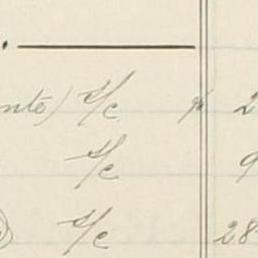 nte) s/c 2
s/c 9
s/c 28